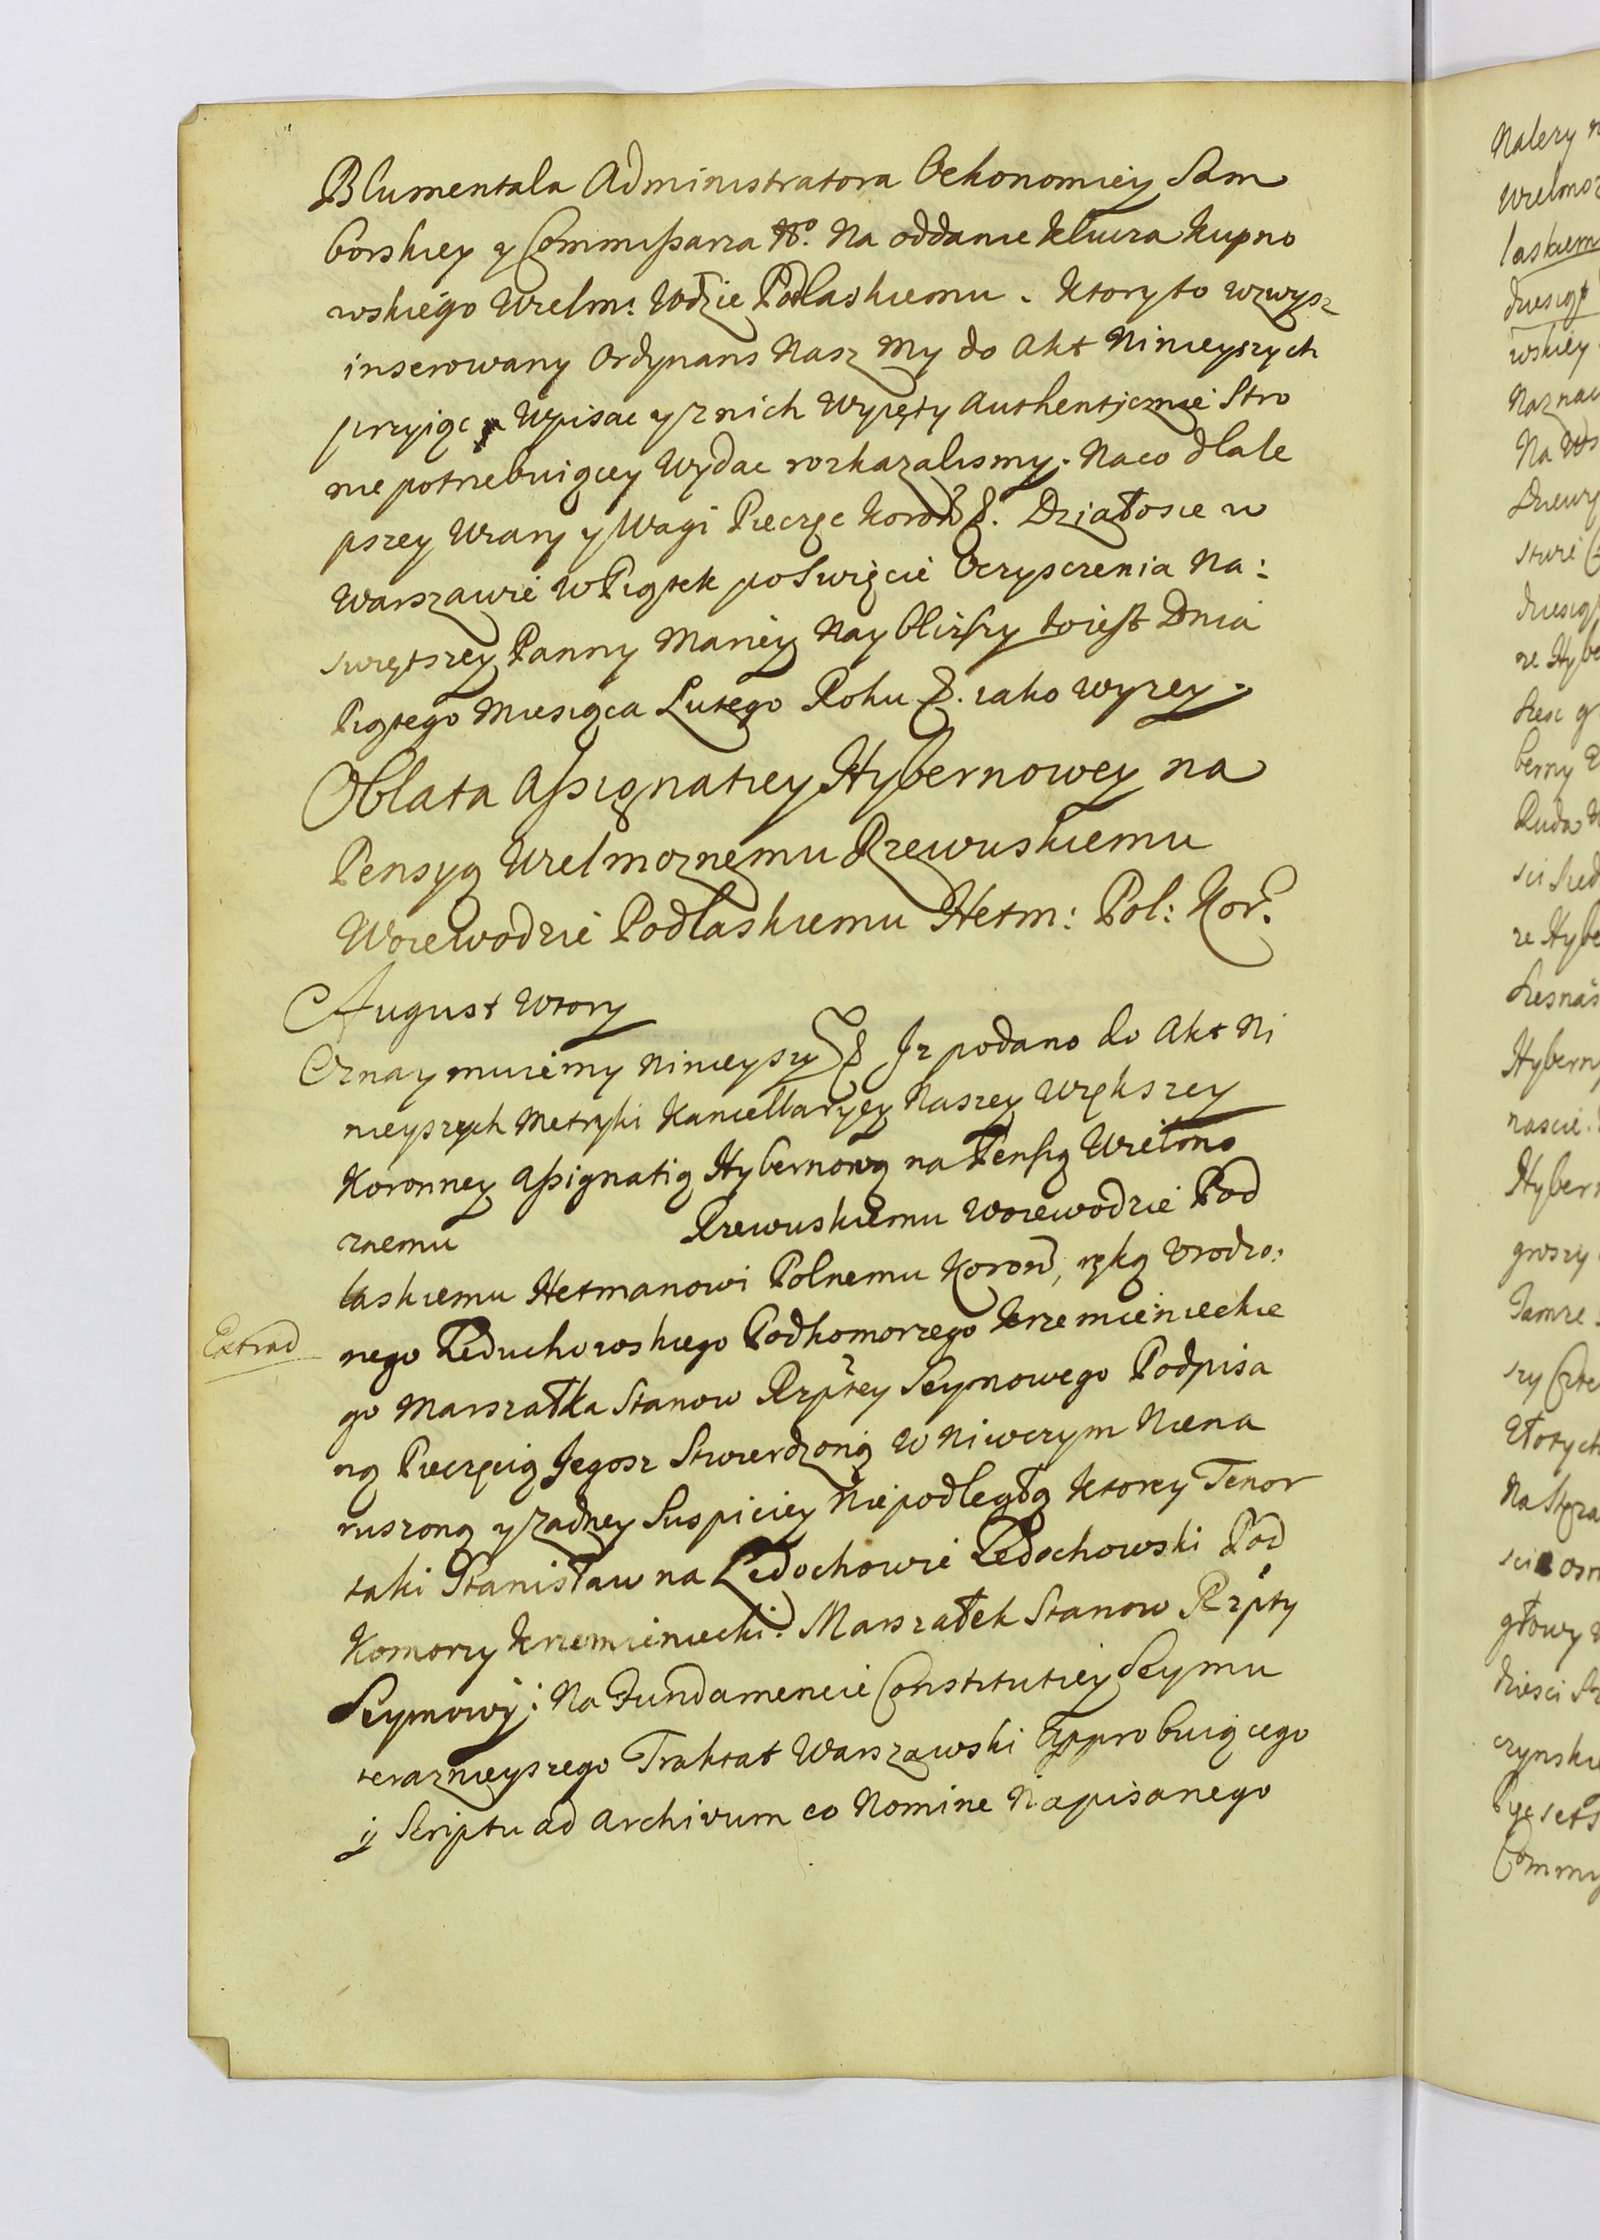 Blumentala Administratora Oekonomiey Sam
borskiey y Commissarza No. Na oddanie klucza Kupno
wskiego Wielm: Wdzie Podlaskiemu. Ktory to wzwysz
inserowany Ordynans Nasz my do Akt Ninieyszych
przyiąc y Wpisac y z nich Wypisy Authentycznie Stro
nie potrzebuiącey Wydac rozkazalismy. Na co dla le
pszey Wiary y Wagi Pieczęc Koron &. Działo sie w
Warszawie W Piątek po Swięcie Oczyszczenia Na:
swiętszey Panny Mariey Nayblizszy to iest Dnia
Piątego Miesiąca Lutego Roku &. iako wyzey.
Oblata Assignatiey Hybernowey na
Pensyą Wielmoznemu Rzewuskiemu
Woiewodzie Podlaskiemu Hetm: Pol: Kor.
August Wtory
Oznaymuiemy Ninieyszy &. Iz podano do Akt Ni
nieyszych Metryki Kancellaryey Naszey Większey
Koronney Assignatią Hybernową na Pensią Wielmo
znemu Rzewuskiemu Woiewodzie Pod
laskiemu Hetmanowi Polnemu Koron, ręką Urodzo:
Extrad
nego Leduchowskiego Podkomorzego Krzemienieckie
go Marszałka Stanow Rzptey Seymowego Podpisa
ną Pieczęcią Jegosz Stwierdzoną W Niwczym Niena
ruszoną y zadney Suspiciey Niepodległą Ktorey Tenor
taki Stanisław na Ledochowie Ledochowski Pod
Komorzy Krzemieniecki. Marszałek Stanow Rzpty
Seymowy: Na Fundamencie Constitutiey Seymu
terazniejszego Traktat Warszawski Approbuiącego
ij Scriptu ad Archivum eo Nomine Napisanego
Nalezy
laskiem
wskiey
Hyberny
Hyber
groszy
Złotych
głowy